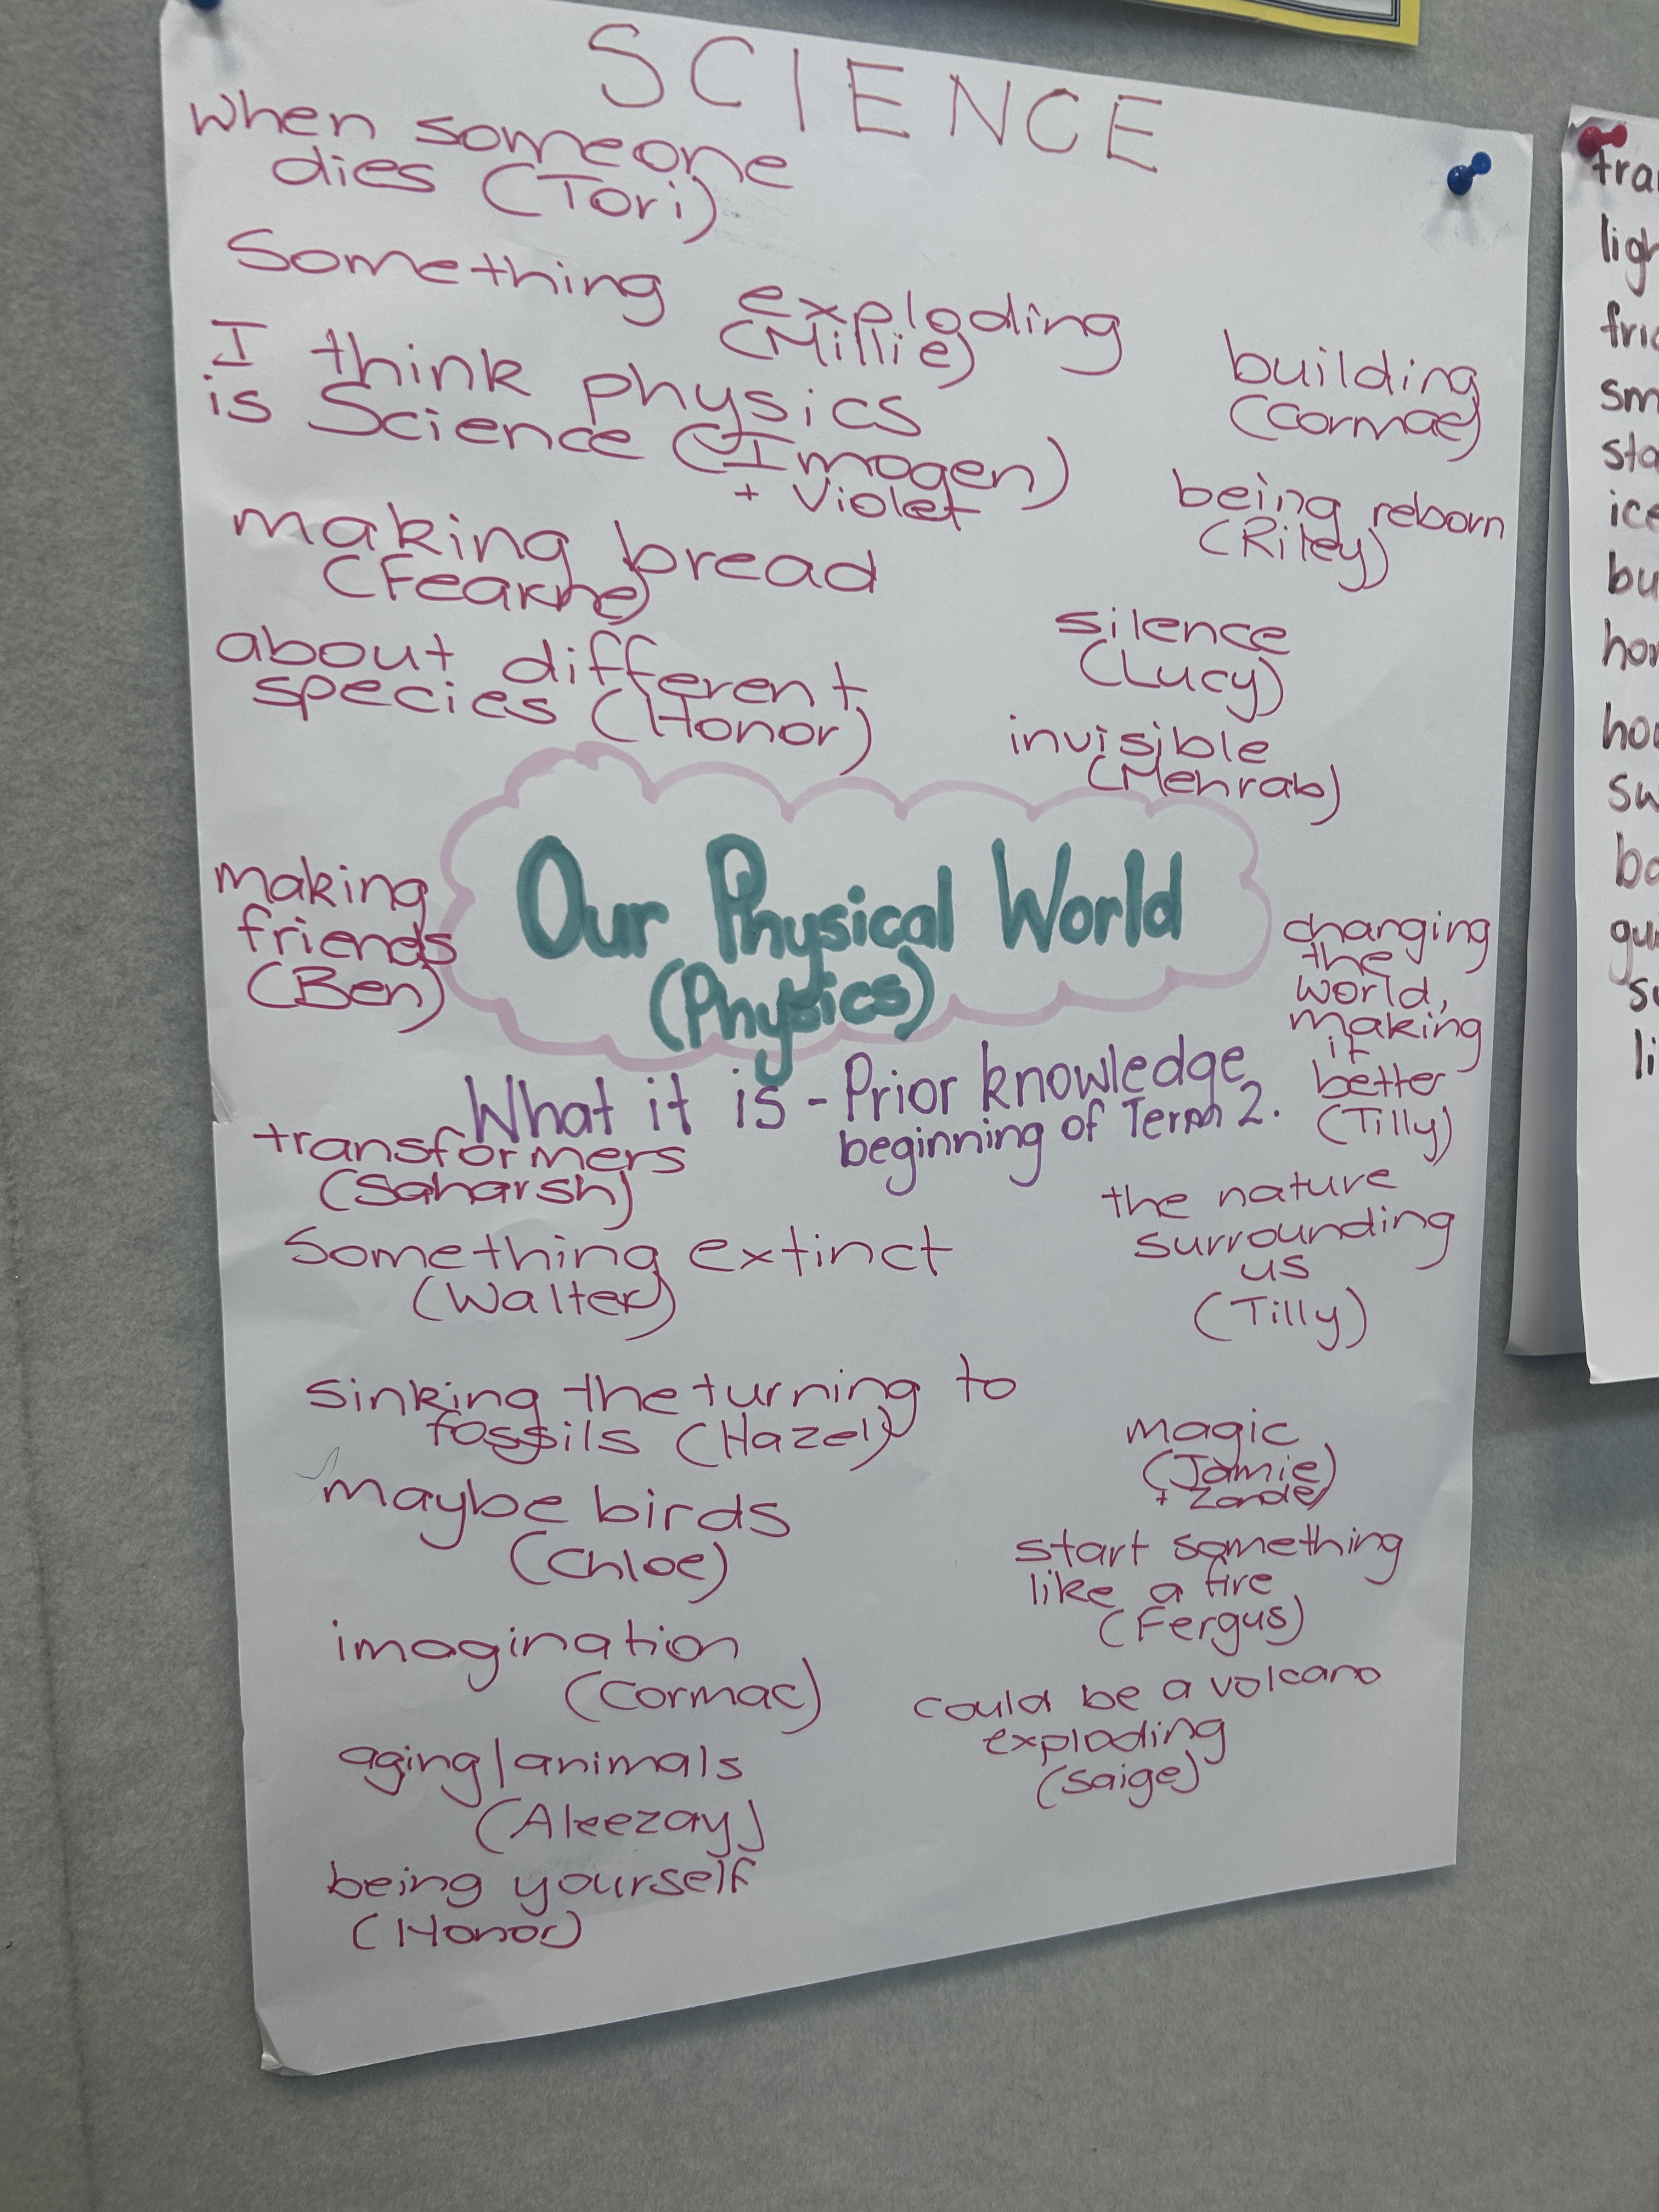 SCIENCE
when someone
dies (Tori)
Something exploding
(Millie)
I think physics
is Science (Imogen)
+ Violet
making bread
(Fearne)
about different
species (Honor)
building
(Cormac)
being reborn
(Riley)
silence
(Lucy)
invisible
(Mehrab)
making
friends
(Ben)
Our Physical World
(Physics)
What it is - Prior knowledge
beginning of Term 2.
changing
the
world,
making
it
better
(Tilly)
transformers
(Saharsh)
Something extinct
(Walter)
sinking the turning to
fossils (Hazel)
maybe birds
(Chloe)
imagination
(Cormac)
aging/animals
(Aleezay)
being yourself
(Honor)
the nature
surrounding
us
(Tilly)
magic
(Jamie)
+ Zande)
start something
like a fire
(Fergus)
could be a volcano
exploding
(Saige)
tra
ligh
fric
sm
sta
ice
bu
hor
hou
sw
ba
gui
su
li